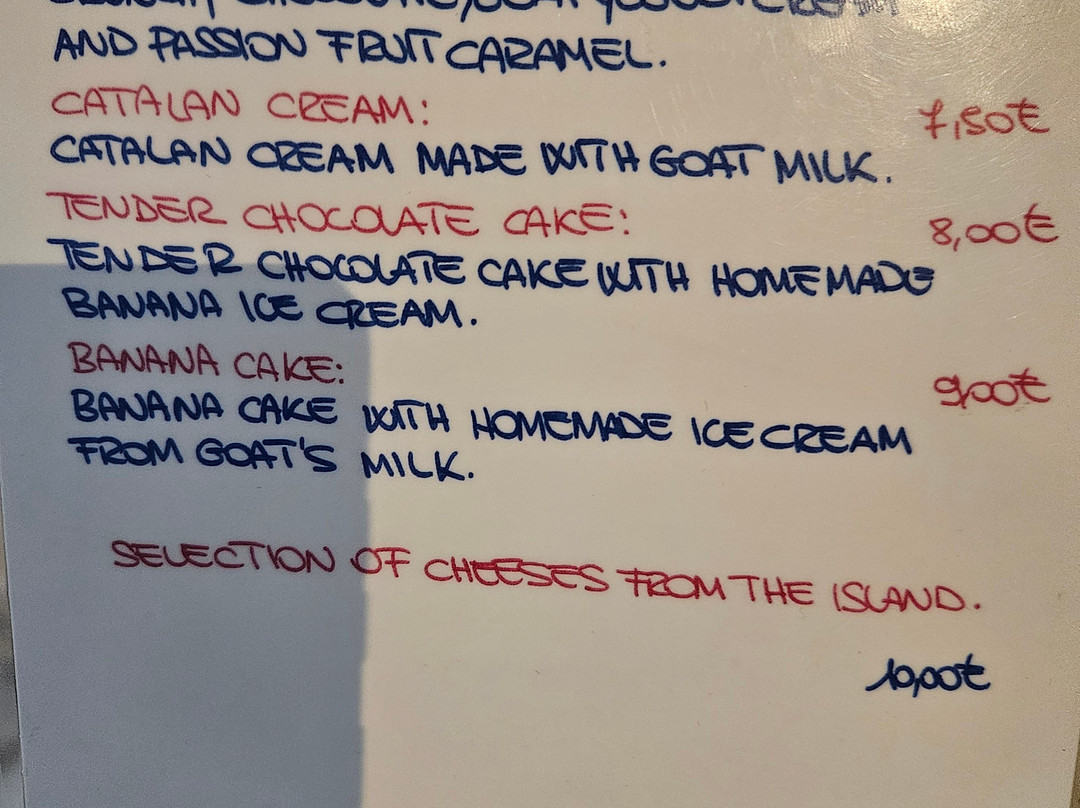 AND PASSION FRUIT CARAMEL.
CATALAN CREAM: 7,50€
CATALAN CREAM MADE WITH GOAT MILK.
TENDER CHOCOLATE CAKE: 8,00€
TENDER CHOCOLATE CAKE WITH HOMEMADE
BANANA ICE CREAM.
BANANA CAKE: 9,00€
BANANA CAKE WITH HOMEMADE ICE CREAM
FROM GOAT'S MILK.
SELECTION OF CHEESES FROM THE ISLAND.
10,00€